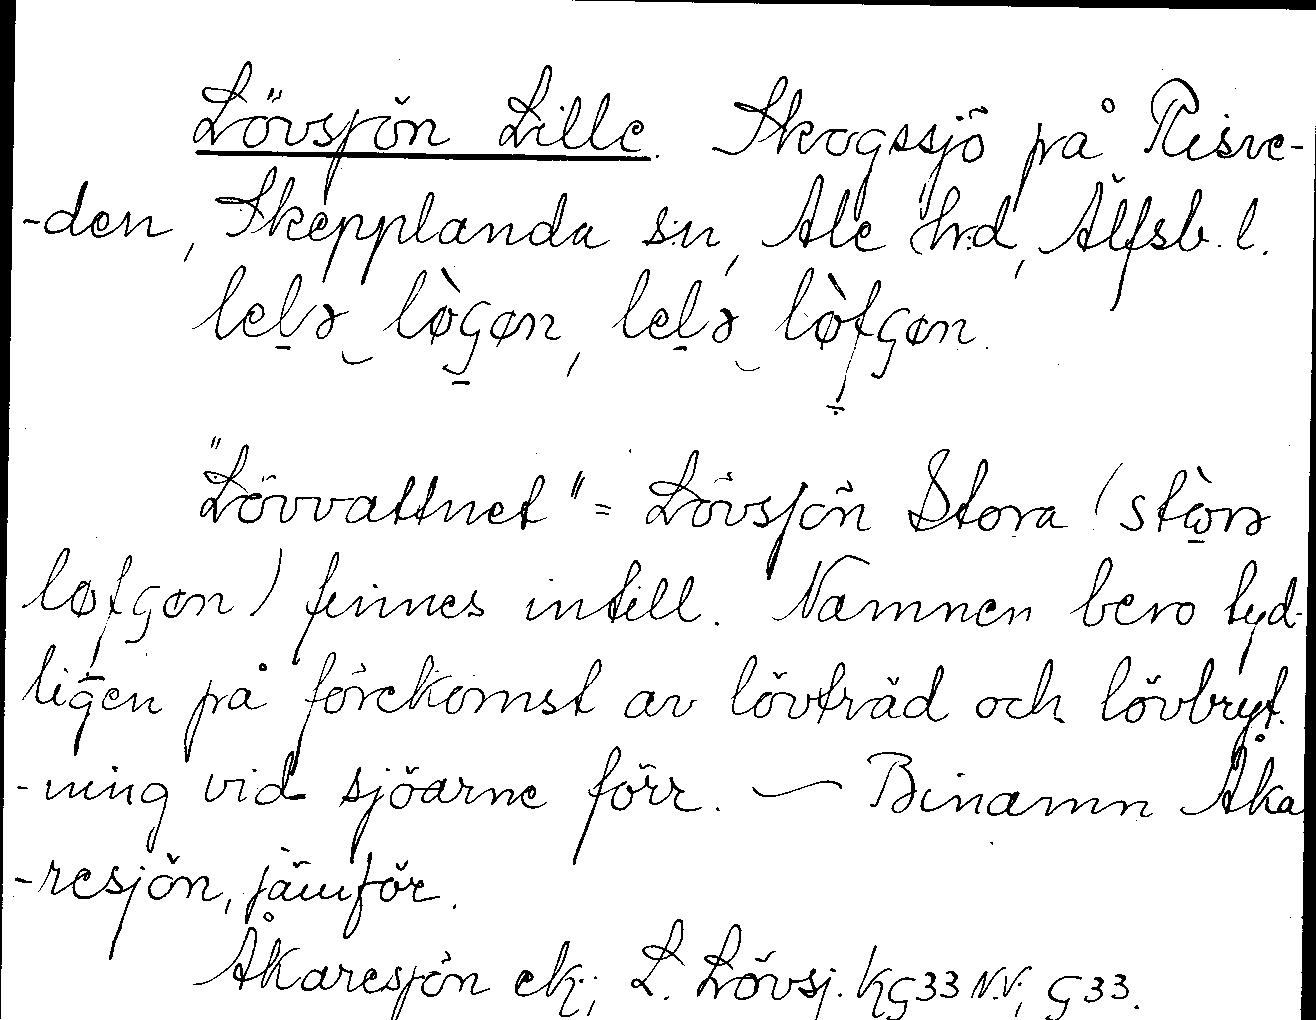 Lövsjön Lille. Skogssjö på Risve-
-den, Skepplanda sn, Ale hd, Älfsb. l.
lelə lògøn, lelə lòfgøn.
"Lövvattnet" = Lövsjön Stora (stòrə
løfgøn) finnes intill. Namnen bero tyd-
ligen på förekomst av lövträd och lövbryt-
-ning vid sjöarne förr. — Binamn Åka
-resjön, jämför.
Åkaresjön ek; L. Lövsj. kG33 N.V; G33.